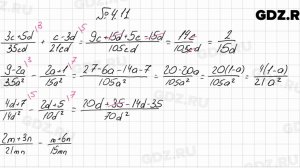 №4.11
GDZ.RU
3c+5d/35cd + c-3d/21cd = 9c+15d+5c-15d/105cd = 14c/105cd = 2/15d
9-2a/35a² - 2a+1/15a² = 27-6a-14a-7/105a² = 20-20a/105a² = 20(1-a)/105a² = 4(1-a)/21a²
4d+7/14d² - 2d+5/10d² = 20d+35-14d-35/70d²
2m+3n/21mn - m+6n/15mn
GDZ.RU